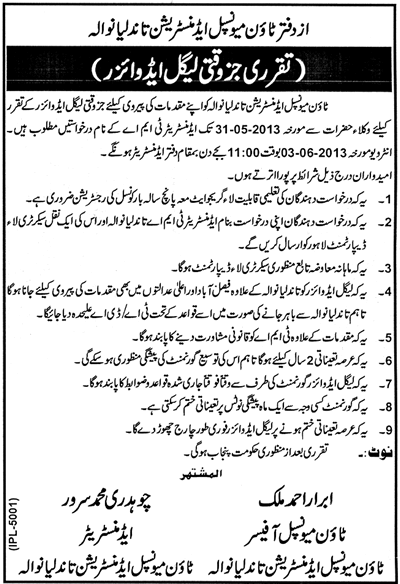 از دفتر ٹاؤن میونسپل ایڈمنسٹریشن تاندلیانوالہ
( تقرری جزوقتی لیگل ایڈوائزر )
ٹاؤن میونسپل ایڈمنسٹریشن تاندلیانوالہ کو اپنے مقدمات کی پیروی کیلئے جزوقتی لیگل ایڈوائزر کے تقرر
کیلئے وکلاء حضرات سے مورخہ 31-05-2013 تک ایڈمنسٹریٹر ٹی ایم اے کے نام درخواستیں مطلوب ہیں۔
انٹرویو مورخہ 03-06-2013 بوقت 11:00 بجے دن بمقام دفتر ایڈمنسٹریٹر ہونگے۔
امیدواران درج ذیل شرائط پر پورا اترتے ہوں۔
1۔ یہ کہ درخواست دہندگان کی تعلیمی قابلیت لاء گریجوایٹ معہ پانچ سالہ بار کونسل کی رجسٹریشن ضروری ہے۔
2۔ یہ کہ درخواست دہندگان اپنی درخواست بنام ایڈمنسٹریٹر ٹی ایم اے تاندلیانوالہ اور اس کی ایک نقل سیکرٹری لاء
ڈیپارٹمنٹ لاہور کو ارسال کریں گے۔
3۔ یہ کہ ماہانہ معاوضہ تابع منظوری سیکرٹری لاء ڈیپارٹمنٹ ہوگا۔
4۔ یہ کہ لیگل ایڈوائزر کو تاندلیانوالہ کے علاوہ فیصل آباد اور اعلیٰ عدالتوں میں بھی مقدمات کی پیروی کیلئے جانا ہوگا
تاہم تاندلیانوالہ سے باہر جانے کی صورت میں اسے قواعد کے تحت ٹی اے/ڈی اے علیحدہ دیا جائیگا۔
5۔ یہ کہ مقدمات کے علاوہ ٹی ایم اے کو قانونی مشاورت دینے کا پابند ہوگا۔
6۔ یہ کہ عرصہ تعیناتی 2 سال کیلئے ہوگا تاہم اس کی توسیع گورنمنٹ کی پیشگی منظوری ہو سکے گی۔
7۔ یہ کہ لیگل ایڈوائزر گورنمنٹ کی طرف سے وقتاً فوقتاً جاری شدہ قواعد و ضوابط کا پابند ہوگا۔
8۔ یہ کہ گورنمنٹ کسی وجہ سے ایک ماہ پیشگی نوٹس پر تعیناتی ختم کر سکتی ہے۔
9۔ یہ کہ عرصہ تعیناتی ختم ہونے پر لیگل ایڈوائزر فوری طور چارج چھوڑ دے گا۔
نوٹ:۔ تقرری بعد از منظوری حکومت پنجاب ہوگی۔
المشتہر
ابرار احمد ملک
ٹاؤن میونسپل آفیسر
ٹاؤن میونسپل ایڈمنسٹریشن تاندلیانوالہ
چوہدری محمد سرور
ایڈمنسٹریٹر
ٹاؤن میونسپل ایڈمنسٹریشن تاندلیانوالہ
(IPL-5001)